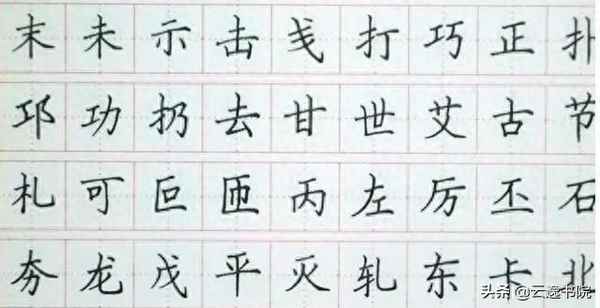 末未示击戋打巧正扑
邛功扔去甘世艾古节
札可叵匝丙左厉丕石
夯龙戊平灭轧东卡北
头条 @云逸书院